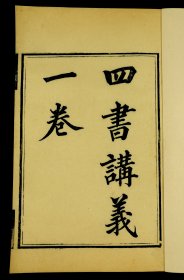 四書講義
一卷